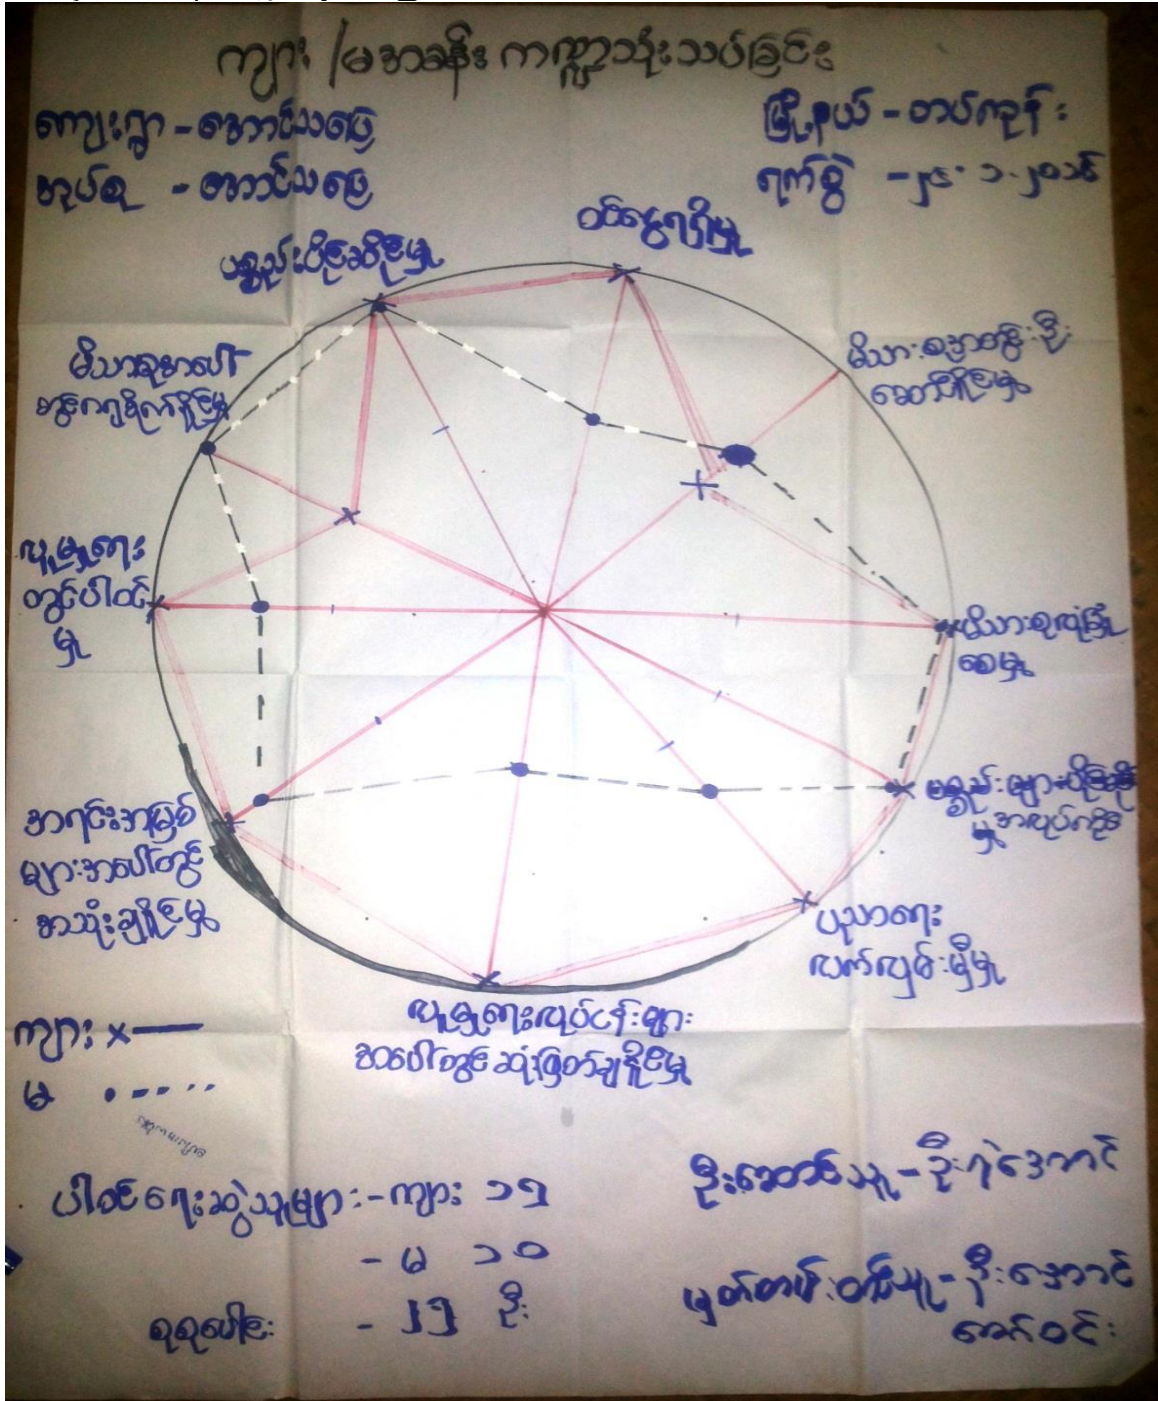 ကျား /မအခန်း ကဏ္ဍသုံးသပ်ခြင်း
ကျေးရွာ - အောင်သပြေ
အုပ်စု - အောင်သပြေ
မြို့နယ် - တပ်ကုန်း
ရက်စွဲ
ဝင်ငွေရရှိမှု
ပစ္စည်းပိုင်ဆိုင်မှု
မိသားစုအတွင်းဦး
ဆောင်နိုင်မှု
မိသားစုအပေါ်
လူမှုရေး
တွင်ပါဝင်
မှု
မိသားစုလုံခြုံ
စေမှု
အရင်းအမြစ်
များအပေါ်တွင်
အသုံးချနိုင်မှု
ပညာရေး
လက်လှမ်းမှီမှု
လူမှုရေးလုပ်ငန်းများ
အပေါ်တွင်ဆုံးဖြတ်ချနိုင်မှု
ကျား x—
မ •----
ပါဝင်ရေးဆွဲသူများ - ကျား ၁၅
- မ ၁၀
စုစုပေါင်း - ၂၅ ဦး
ဦးဆောင်သူ - ဦးရဲအောင်
မှတ်တမ်းတင်သူ - ဦးအောင်